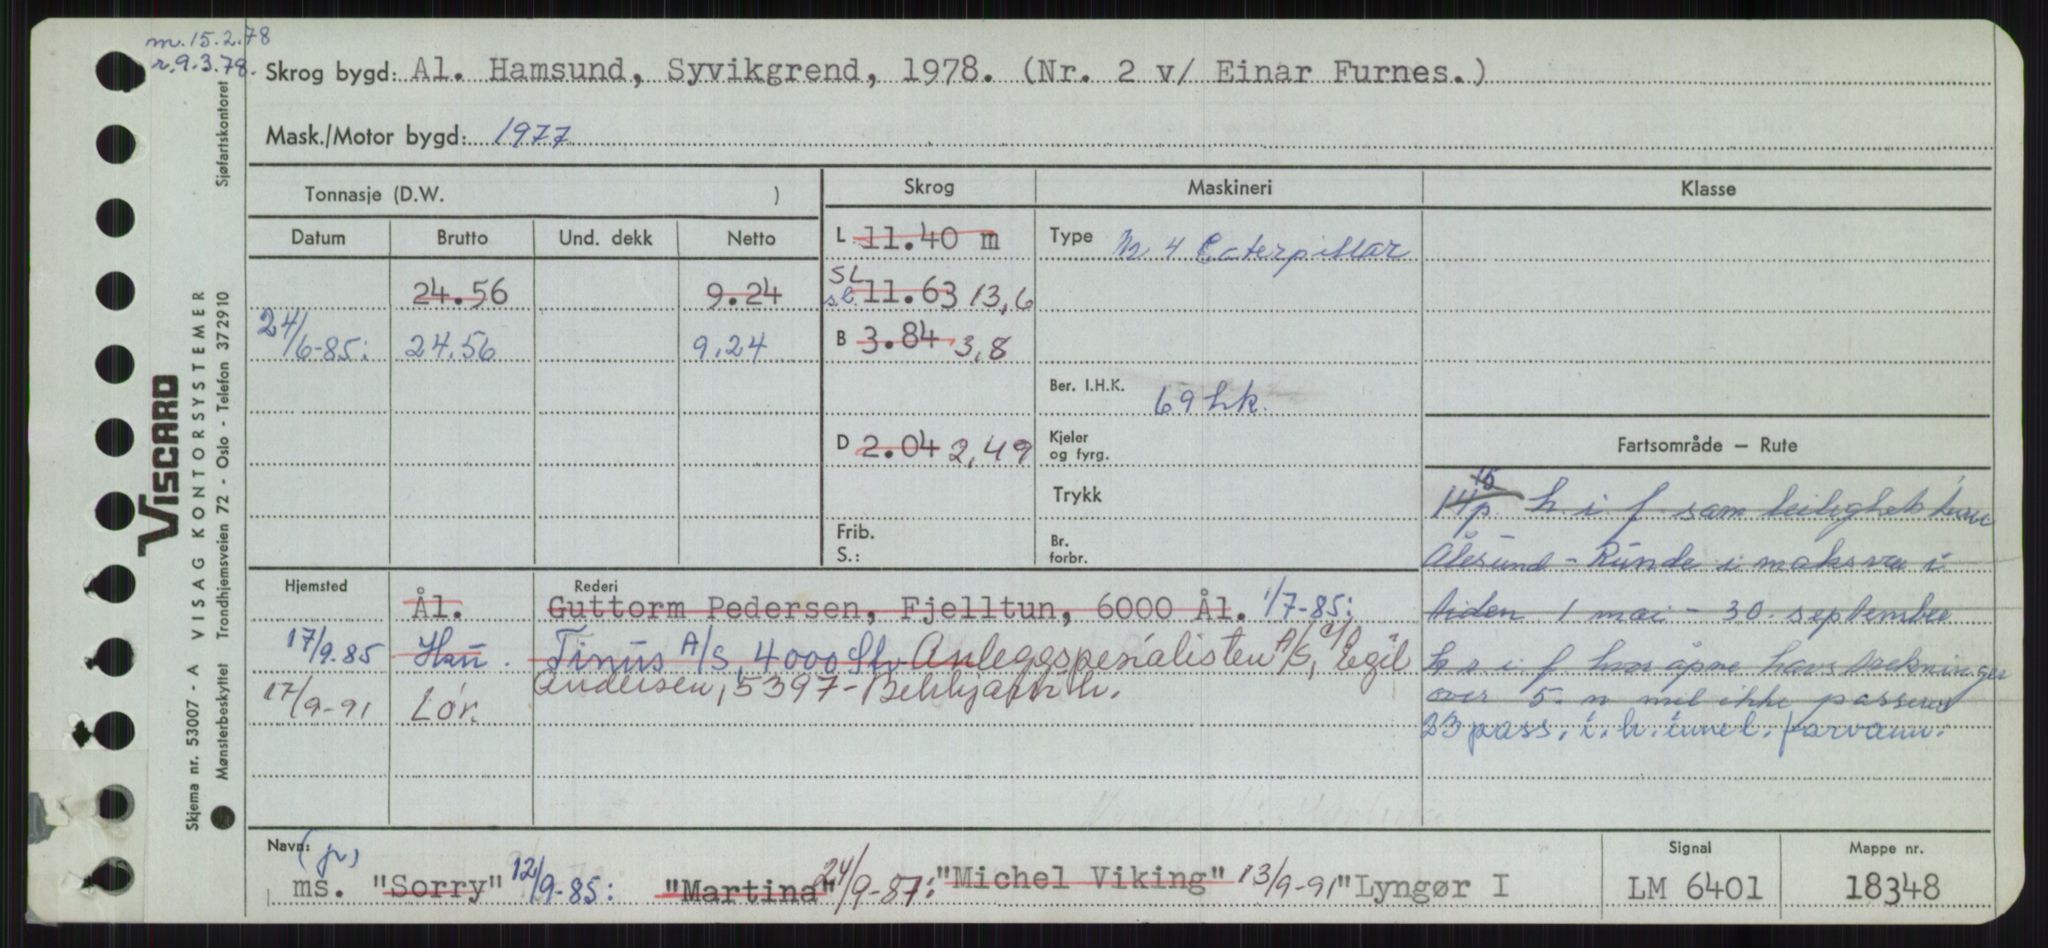 m. 15.2.78
r. 9.3.78.
Skrog bygd: Al. Hamsund, Syvikgrend, 1978. (Nr. 2 v/ Einar Furnes.)
Mask./Motor bygd: 1977
Tonnasje (D.W. )
Skrog
Maskineri
Klasse
Datum Brutto Und. dekk Netto
L 11.40 m
Type 4 Caterpillar
24.56 9.24
SL
s.l. 11.63 13,6
24/6-85: 24.56 9.24
B 3.84 3,8
Ber. I.H.K. 69 hk.
D 2.04 2,49
Kjeler
og fyrg.
Trykk
Frib.
S.:
Br.
forbr.
Fartsområde – Rute
15
14 p. h i f sam leilighets
Ålesund - Runde i maksvær i
tiden 1 mai - 30. september
i f hvor åpne havstrekninger
over 5 n mil ikke passeres
23 pass. i. h. innel. farvann.
Hjemsted
Rederi
Ål. Guttorm Pedersen, Fjelltun, 6000 Ål. 1/7-85:
17/9.85 Hau. Tinus A/S, 4000 Stv. Anleggspesialisten A/S, c/ Egil
Andersen, 5397 - Bekkjarvik.
17/9-91 Lor.
Navn: (jr)
ms. "Sorry" 12/9-85: "Martina" 24/9-87: "Michel Viking" 13/9-91 "Lyngør I
Signal
LM 6401
Mappe nr.
18348
VISCARD
Skjema nr. 53007 - A VISAG KONTORSYSTEMER Sjøfartskontoret
Mønsterbeskyttet Trondhjemsveien 72 - Oslo - Telefon 372910